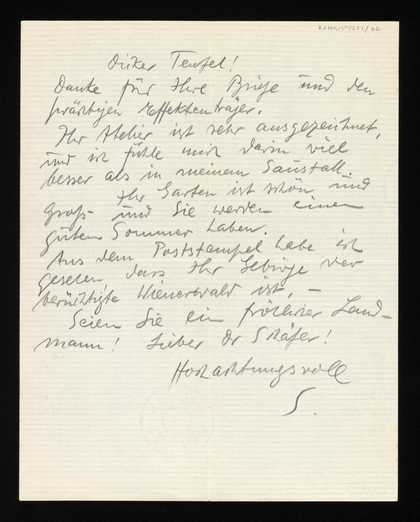 Dicker Teufel!
Danke für Ihre Briefe und den
prächtigen Effektenträger.
Ihr Atelier ist sehr ausgezeichnet,
und ich fühle mich darin viel
besser als in meinem Saustall.
Ihr Garten ist schön und
groß und Sie werden einen
guten Sommer haben.
Aus dem Poststempel habe ich
gesehen dass Ihr Gebirge der
berüchtigte Wienerwald ist, –
Seien Sie ein fröhlicher Land-
mann! Lieber Dr Schäfer!
Hochachtungsvoll
S.